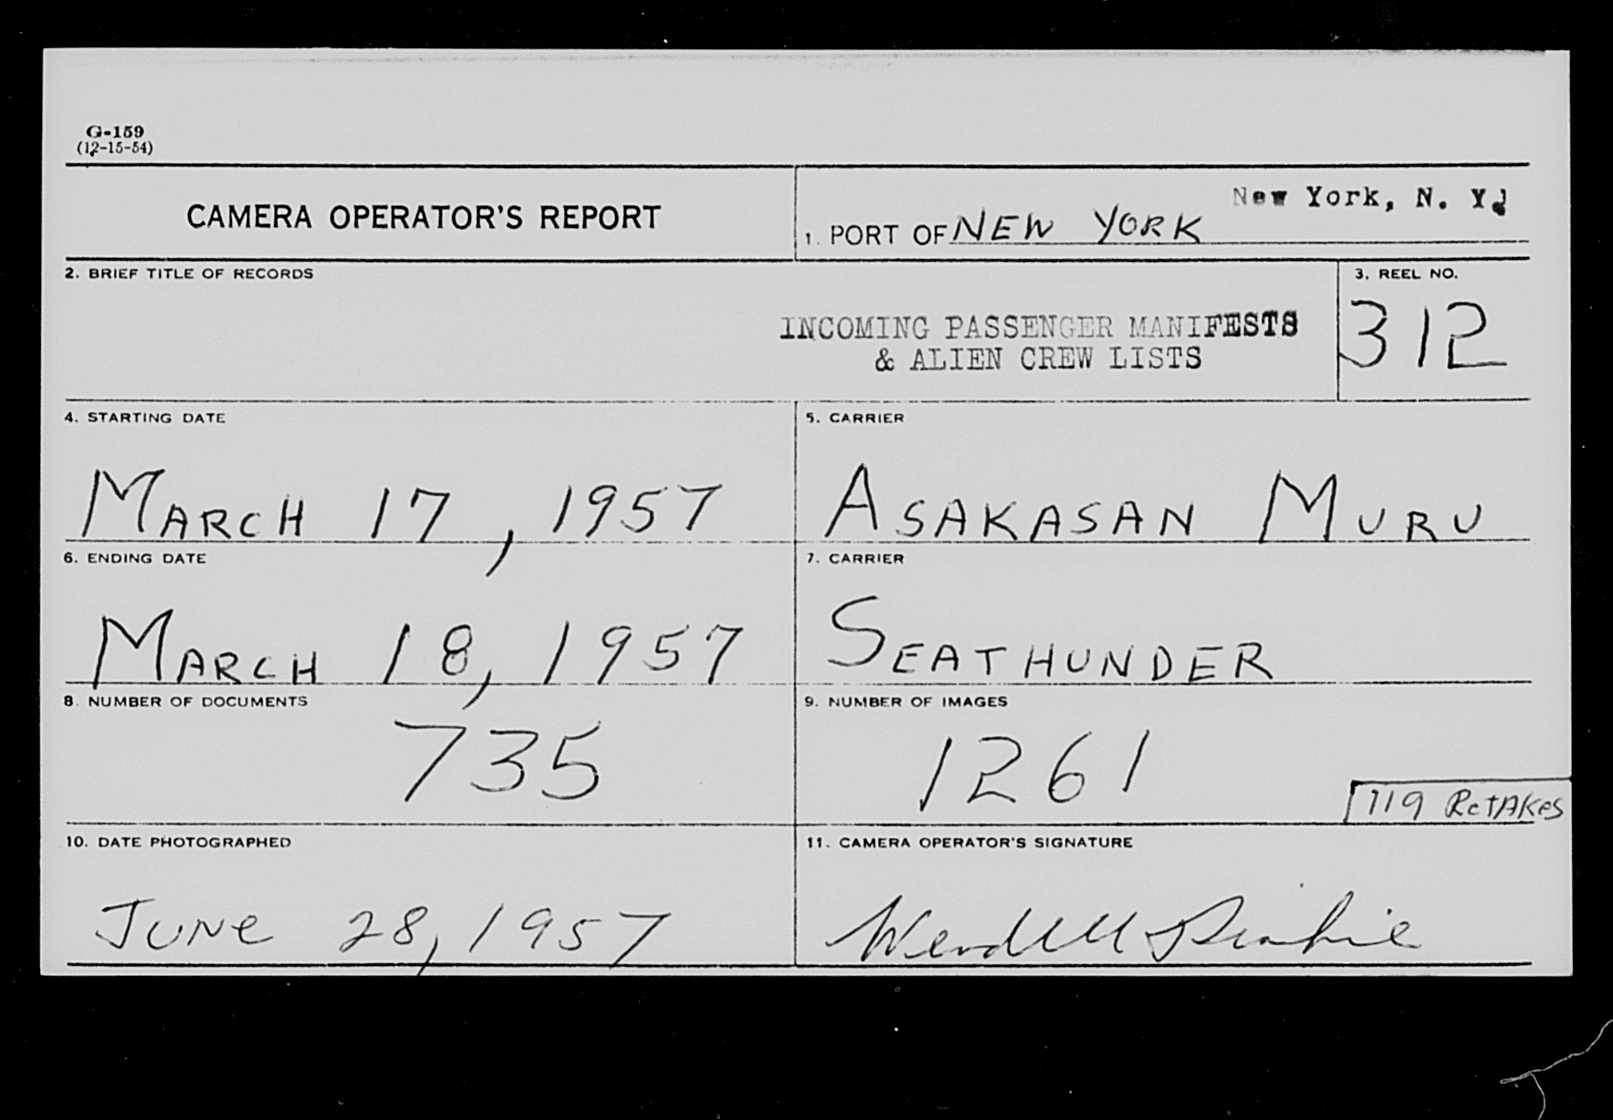 G-159
(12-15-54)
CAMERA OPERATOR'S REPORT
New York, N. Y.
1. PORT OF NEW YORK
2. BRIEF TITLE OF RECORDS
INCOMING PASSENGER MANIFESTS
& ALIEN CREW LISTS
3. REEL NO.
312
4. STARTING DATE
MARCH 17, 1957
5. CARRIER
ASAKASAN MURU
6. ENDING DATE
MARCH 18, 1957
7. CARRIER
SEATHUNDER
8. NUMBER OF DOCUMENTS
735
9. NUMBER OF IMAGES
1261
119 RetAkes
10. DATE PHOTOGRAPHED
JUNe 28, 1957
11. CAMERA OPERATOR'S SIGNATURE
Wendell